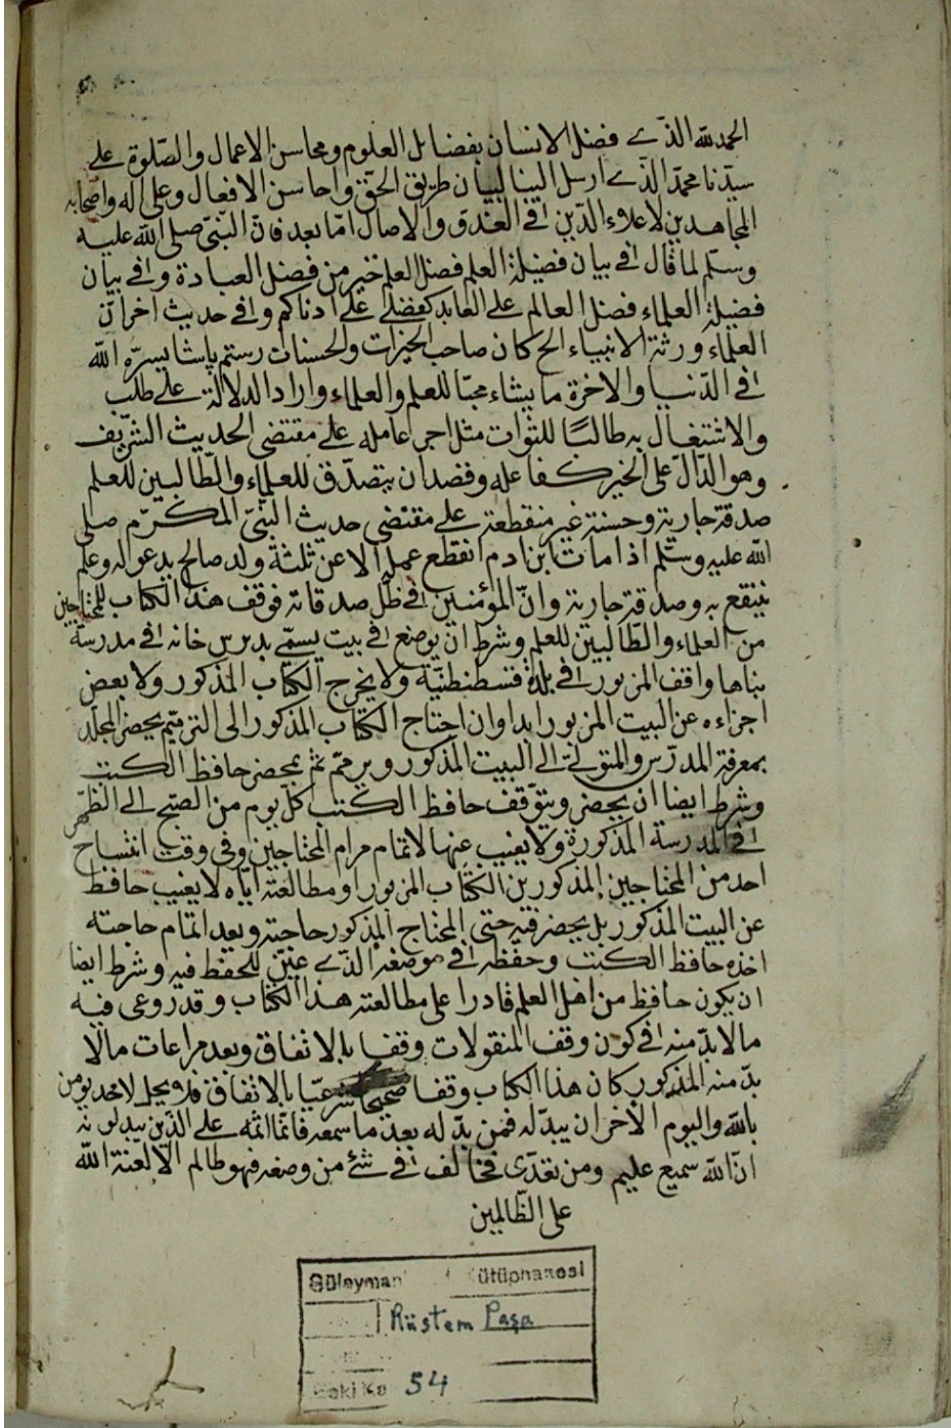 الحمد لله الذى فضل الانسان بفضائل العلوم ومحاسن الاعمال والصّلوة على
سيّدنا محمّد الذى ارسل الينا لبيان طريق الحقّ واحاسن الافعال وعلى اله واصحابه
المجاهدين لاعلاء الدّين فى الغدوّ والاصال امّا بعد فانّ النبىّ صلى الله عليه
وسلّم لما قال فى بيان فضيلة العلم فضل العلم خير من فضل العبادة وفى بيان
فضيلة العلماء فضل العالم على العابد كفضلى على ادناكم وفى حديث اخر انّ
العلماء ورثة الانبياء الخ كان صاحب الخيرات والحسنات رستم پاشا يسرّه الله
فى الدّنيا والاخرة ما يشاء محبّا للعلم والعلماء واراد الدلالة على طلب
والاشتغال به طالبًا للثواب مثل اجر عامله على مقتضى الحديث الشّريف
وهو الدّالّ على الخير كفاعله وقصد ان يتصدّق للعلماء والطّالبين للعلم
صدقة جارية وحسنة غير منقطعة على مقتضى حديث النّبىّ المكرّم صلى
الله عليه وسلّم اذا مات ابن ادم انقطع عمله الا عن ثلثة ولد صالح يدعو له وعلم
ينتفع به وصدقة جارية وانّ المؤمنين فى ظلّ صدقاته فوقف هذا الكتاب للمحتاجين
من العلماء والطّالبين للعلم وشرط ان يوضع فى بيت يسمّى بدرس خانه فى مدرسة
بناها واقف المزبور فى بلدة قسطنطنيّة ولا يخرج الكتاب المذكور ولا بعض
اجزاءه عن البيت المزبور ابدا وان احتاج الكتاب المذكور الى الترميم يحضر المجلّد
بمعرفة المدرّس والمتولّى الى البيت المذكور ويرمّم ثم بمحضر حافظ الكتب
وشرط ايضا ان يحضر ويتوقف حافظ الكتب كلّ يوم من الصّبح الى الظّهر
فى المدرسة المذكورة ولا يغيب عنها لاتمام مرام المحتاجين وفى وقت انتساخ
احد من المحتاجين المذكورين الكتاب المزبور او مطالعته ايّاه لا يغيب حافظ
عن البيت المذكور بل يحضر فيه حتى المحتاج المذكور حاجته وبعد اتمام حاجته
اخذه حافظ الكتب وحفظه فى موضعه الذى عيّن للحفظ فيه وشرط ايضا
ان يكون حافظ من اهل العلم قادرا على مطالعة هذا الكتاب وقد روعى فيه
ما لا بدّ منه فى كون وقف المنقولات وقفا بالاتفاق وبعد مراعات ما لا
بدّ منه المذكور كان هذا الكتاب وقفا صحيحا شرعيّا بالاتفاق فلا يحل لاحد يومن
بالله واليوم الاخر ان يبدّله فمن بدّله بعد ما سمعه فانّما اثمه على الذّين يبدلونه
انّ الله سميع عليم ومن تعدّى فخالف فى شئ من وضعه فهو ظالم الا لعنة الله
على الظّالمين
Süleyman Kütüphanesi
Rüstem Paşa
Eski Ka 54